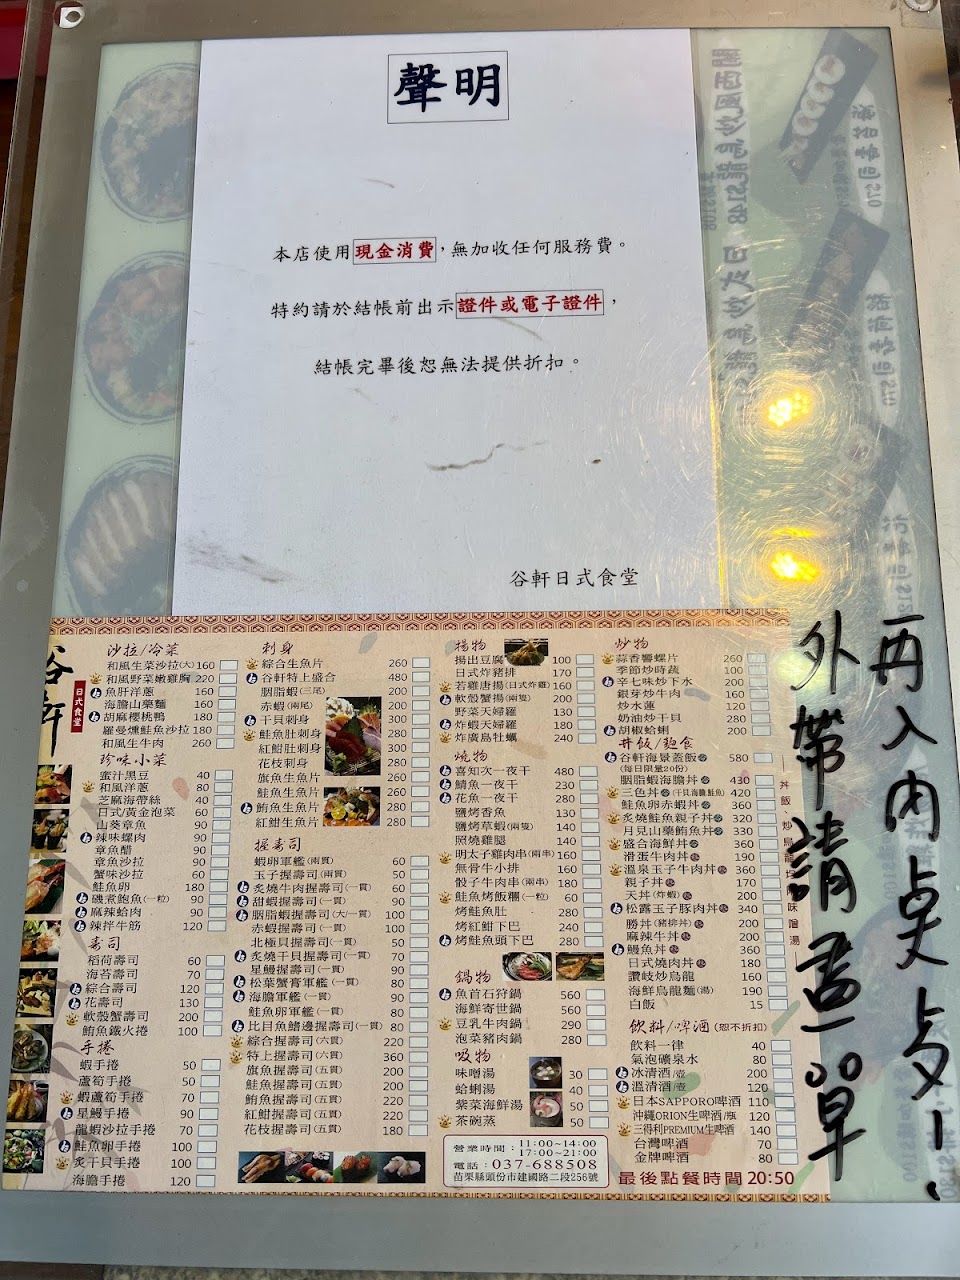 聲明
本店使用現金消費，無加收任何服務費。
特約請於結帳前出示證件或電子證件，
結帳完畢後恕無法提供折扣。
谷軒日式食堂
谷軒
日式食堂
沙拉/冷菜
和風生菜沙拉(大) 160
和風野菜嫩雞胸 220
魚肝洋蔥 160
海膽山藥麵 160
胡麻櫻桃鴨 180
羅曼燻鮭魚沙拉 180
和風生牛肉 260
珍味小菜
蜜汁黑豆 40
和風洋蔥 80
芝麻海帶絲 40
日式/黃金泡菜 60
山葵章魚 90
辣味螺肉 90
章魚醋 90
章魚沙拉 90
蟹味沙拉 60
鮭魚卵 180
磯煮鮑魚(一粒) 90
麻辣蛤肉 90
辣拌牛筋 120
壽司
稻荷壽司 60
海苔壽司 70
綜合壽司 120
花壽司 130
軟殼蟹壽司 200
鮪魚鐵火捲 100
手捲
蝦手捲 50
蘆筍手捲 50
蝦蘆筍手捲 70
星鰻手捲 90
龍蝦沙拉手捲 70
鮭魚卵手捲 100
炙干貝手捲 100
海膽手捲 120
刺身
綜合生魚片 260
谷軒特上盛合 480
胭脂蝦(三尾) 200
赤蝦(兩尾) 200
干貝刺身 300
鮭魚肚刺身 300
紅魽肚刺身 300
花枝刺身 280
旗魚生魚片 260
鮭魚生魚片 260
鮪魚生魚片 280
紅魽生魚片 280
握壽司
蝦卵軍艦(兩貫) 60
玉子握壽司(兩貫) 50
炙燒牛肉握壽司(一貫) 60
甜蝦握壽司(一貫) 60
胭脂蝦握壽司(大/一貫) 100
赤蝦握壽司(一貫) 100
北極貝握壽司(一貫) 50
炙燒干貝握壽司(一貫) 70
星鰻握壽司(一貫) 90
松葉蟹膏軍艦(一貫) 80
海膽軍艦(一貫) 90
鮭魚卵軍艦(一貫) 80
比目魚鰭邊握壽司(一貫) 80
綜合握壽司(六貫) 220
特上握壽司(六貫) 360
旗魚握壽司(五貫) 200
鮭魚握壽司(五貫) 200
鮪魚握壽司(五貫) 220
紅魽握壽司(五貫) 220
花枝握壽司(五貫) 180
揚物
揚出豆腐 100
日式炸豬排 170
若雞唐揚(日式炸雞) 160
軟殼蟹揚(兩隻) 200
野菜天婦羅 130
炸蝦天婦羅 180
炸廣島牡蠣 240
燒物
喜知次一夜干 480
鯖魚一夜干 230
花魚一夜干 280
鹽烤香魚 130
鹽烤草蝦(兩隻) 140
照燒雞腿 140
明太子雞肉串(兩串) 160
無骨牛小排 160
骰子牛肉串(兩串) 180
鮭魚烤飯糰(一粒) 60
烤鮭魚肚 220
烤紅魽下巴 240
烤鮭魚頭下巴 280
鍋物
魚首石狩鍋 560
海鮮寄世鍋 560
豆乳牛肉鍋 290
泡菜豬肉鍋 280
吸物
味噌湯 30
蛤蜊湯 40
紫菜海鮮湯 50
茶碗蒸 50
營業時間：11:00~14:00
17:00~21:00
電話：037-688508
苗栗縣頭份市建國路二段256號
炒物
蒜香響螺片 260
季節炒時蔬 110
辛七味炒下水 120
銀芽炒牛肉 160
炒水蓮 120
奶油炒干貝 280
胡椒蛤蜊 200
丼飯/飽食
谷軒海景蓋飯 580
(每日限量20份)
胭脂蝦海膽丼 430
三色丼(干貝海膽鮭魚) 420
鮭魚卵赤蝦丼 360
炙燒鮭魚親子丼 320
月見山藥鮪魚丼 330
盛合海鮮丼 360
滑蛋牛肉丼 190
溫泉玉子牛肉丼 360
親子丼 170
天丼(炸蝦) 200
松露玉子豚肉丼 340
勝丼(豬排丼) 200
麻辣牛丼 200
鰻魚丼 360
日式燒肉丼 180
讚岐炒烏龍 160
海鮮烏龍麵(湯) 190
白飯 15
飲料/啤酒(恕不折扣)
飲料一律 40
氣泡礦泉水 80
冰清酒/壺 200
溫清酒/壺 120
日本SAPPORO啤酒 110
沖繩ORION生啤酒/瓶 120
三得利PREMIUM生啤酒 140
台灣啤酒 70
金牌啤酒 80
最後點餐時間 20:50
外帶請畫單
再入內桌點